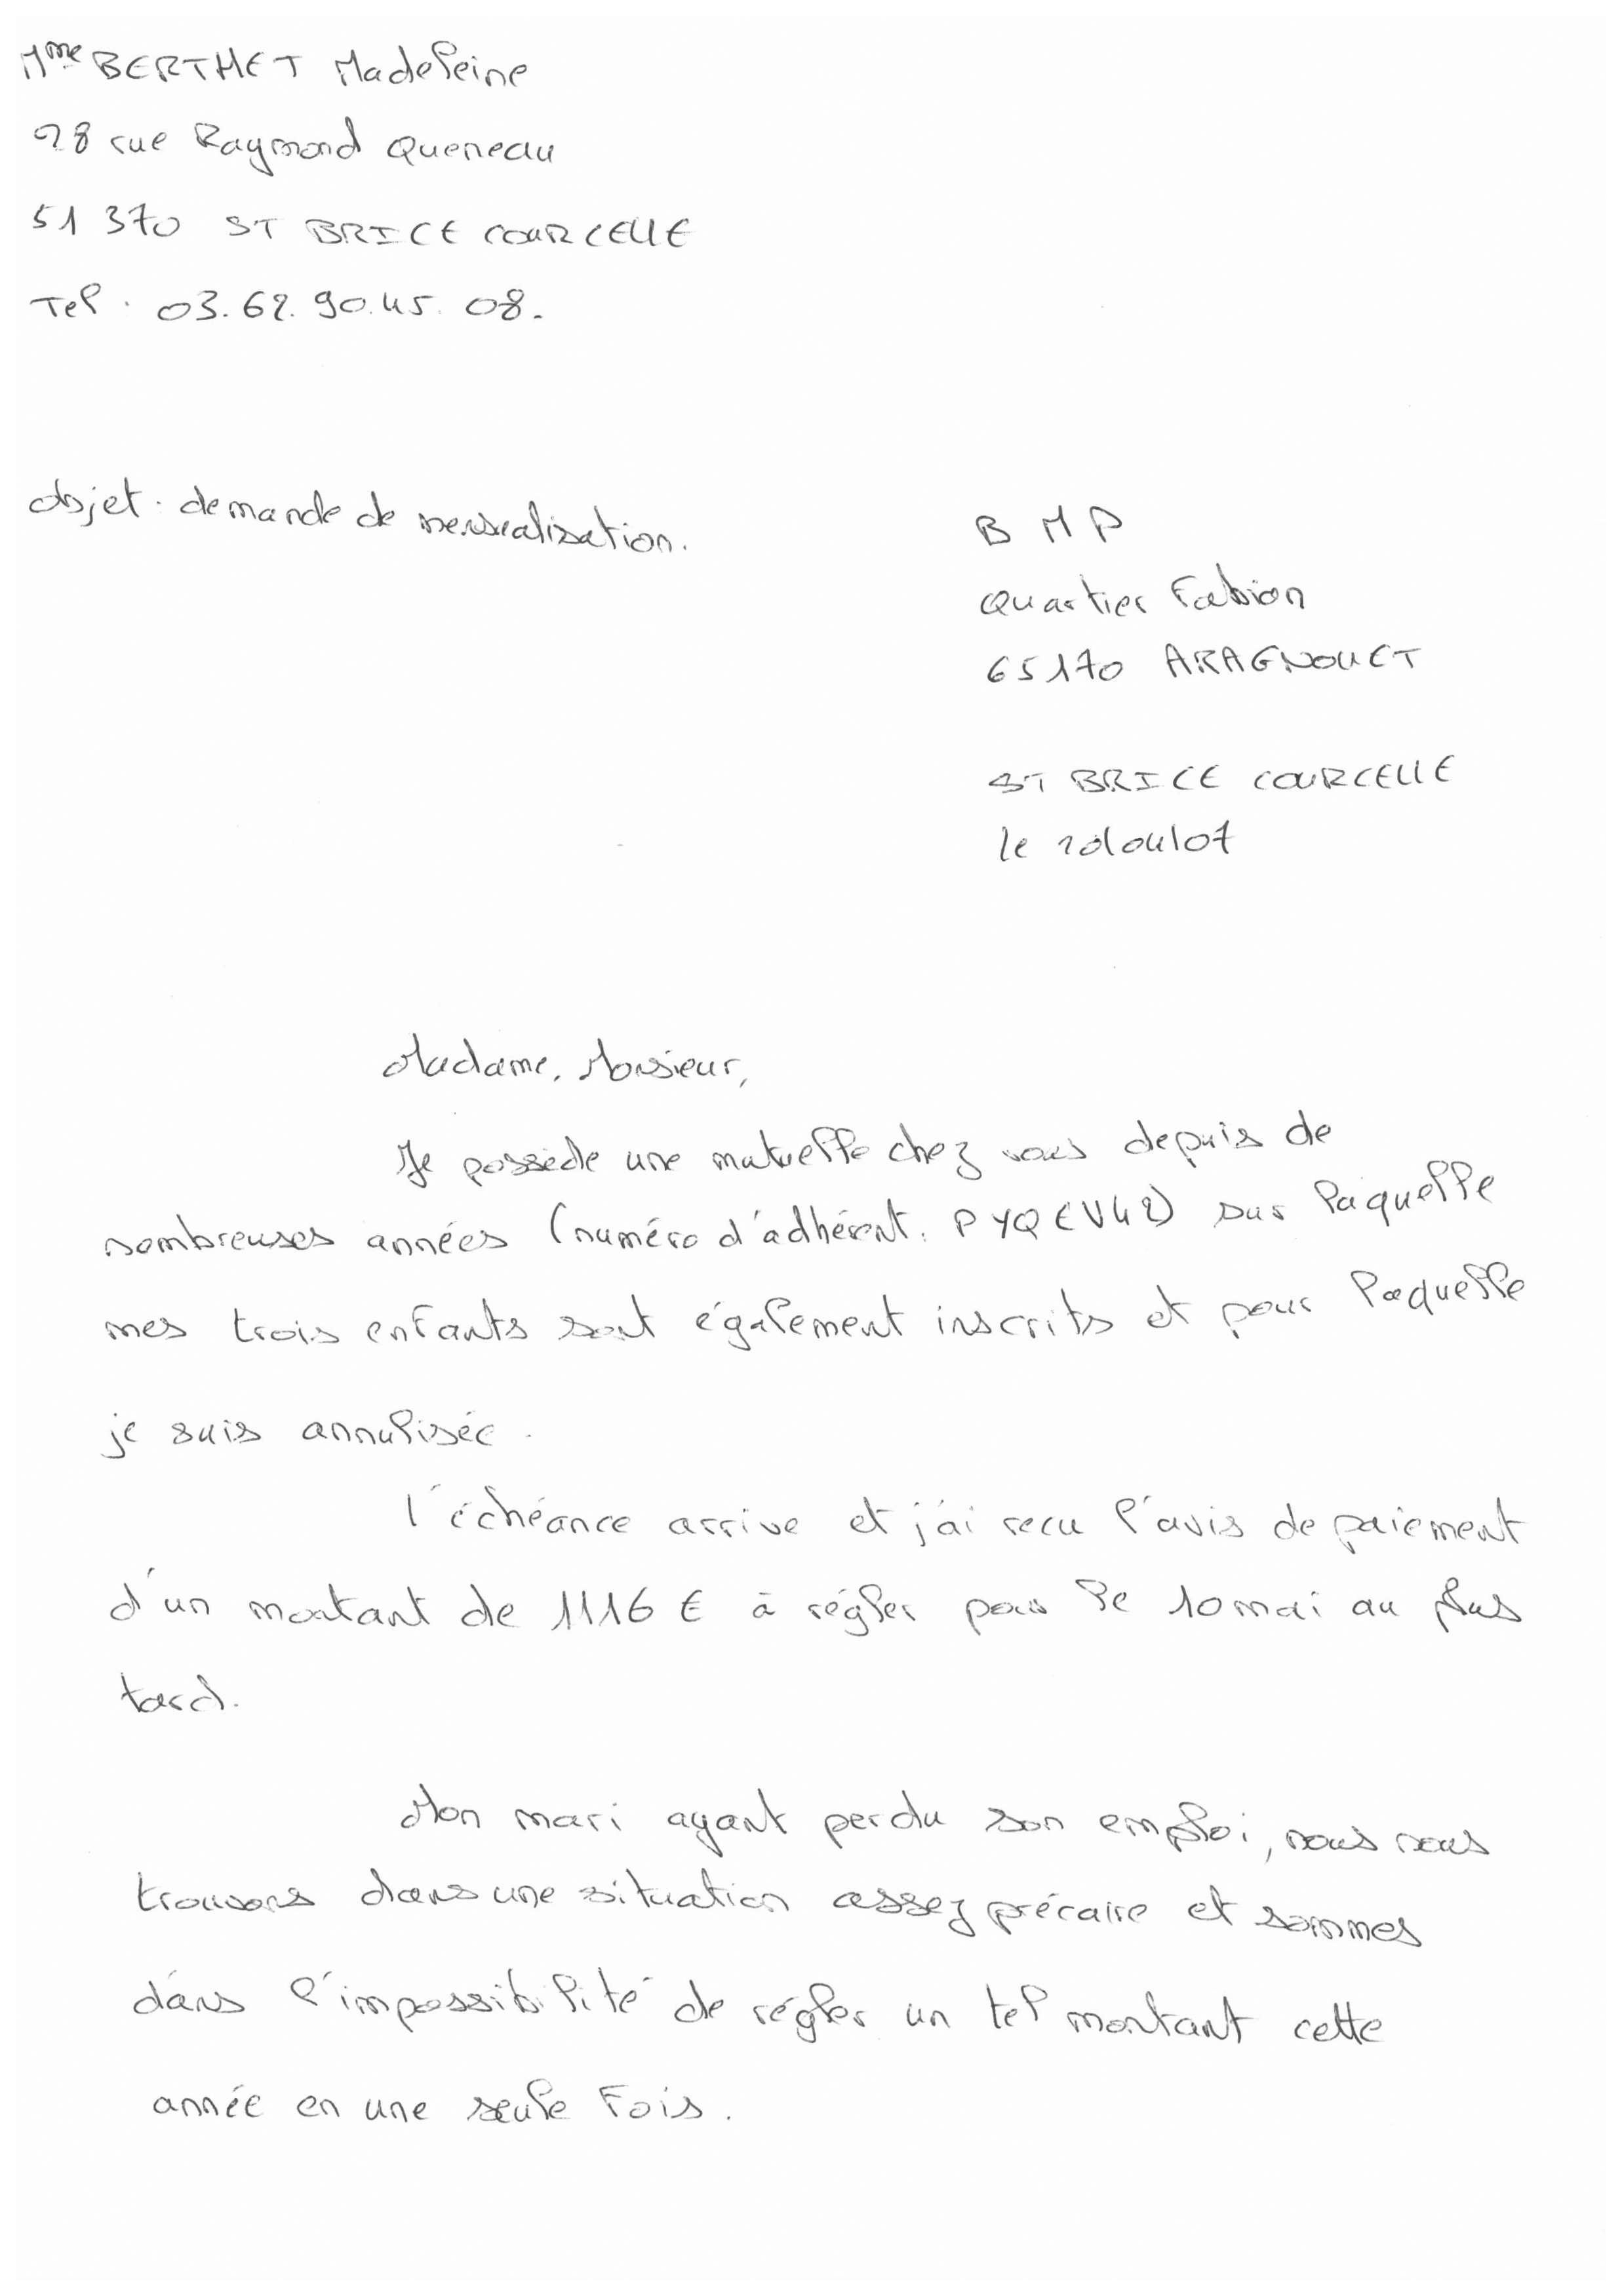 Mme BERTHET Madeleine
28 rue Raymond Queneau
51 370 ST BRICE COURCELLE
Tel : 03.62.90.45.08.
objet : demande de mensualisation.
BMP
Quartier Fabian
65170 ARAGNOUET
ST BRICE COURCELLE
le 20/04/07
Madame, Monsieur,
Je possède une mutuelle chez vous depuis de
nombreuses années (numéro d'adhérent : PYQEV42) sur laquelle
mes trois enfants sont également inscrits et pour laquelle
je suis annulisée.
l'échéance arrive et j'ai recu l'avis de paiement
d'un montant de 1116 € à régler pour le 10 mai au plus
tard.
Mon mari ayant perdu son emploi, nous nous
trouvons dans une situation assez précaire et sommes
dans l'impossibilité de régler un tel montant cette
année en une seule Fois.